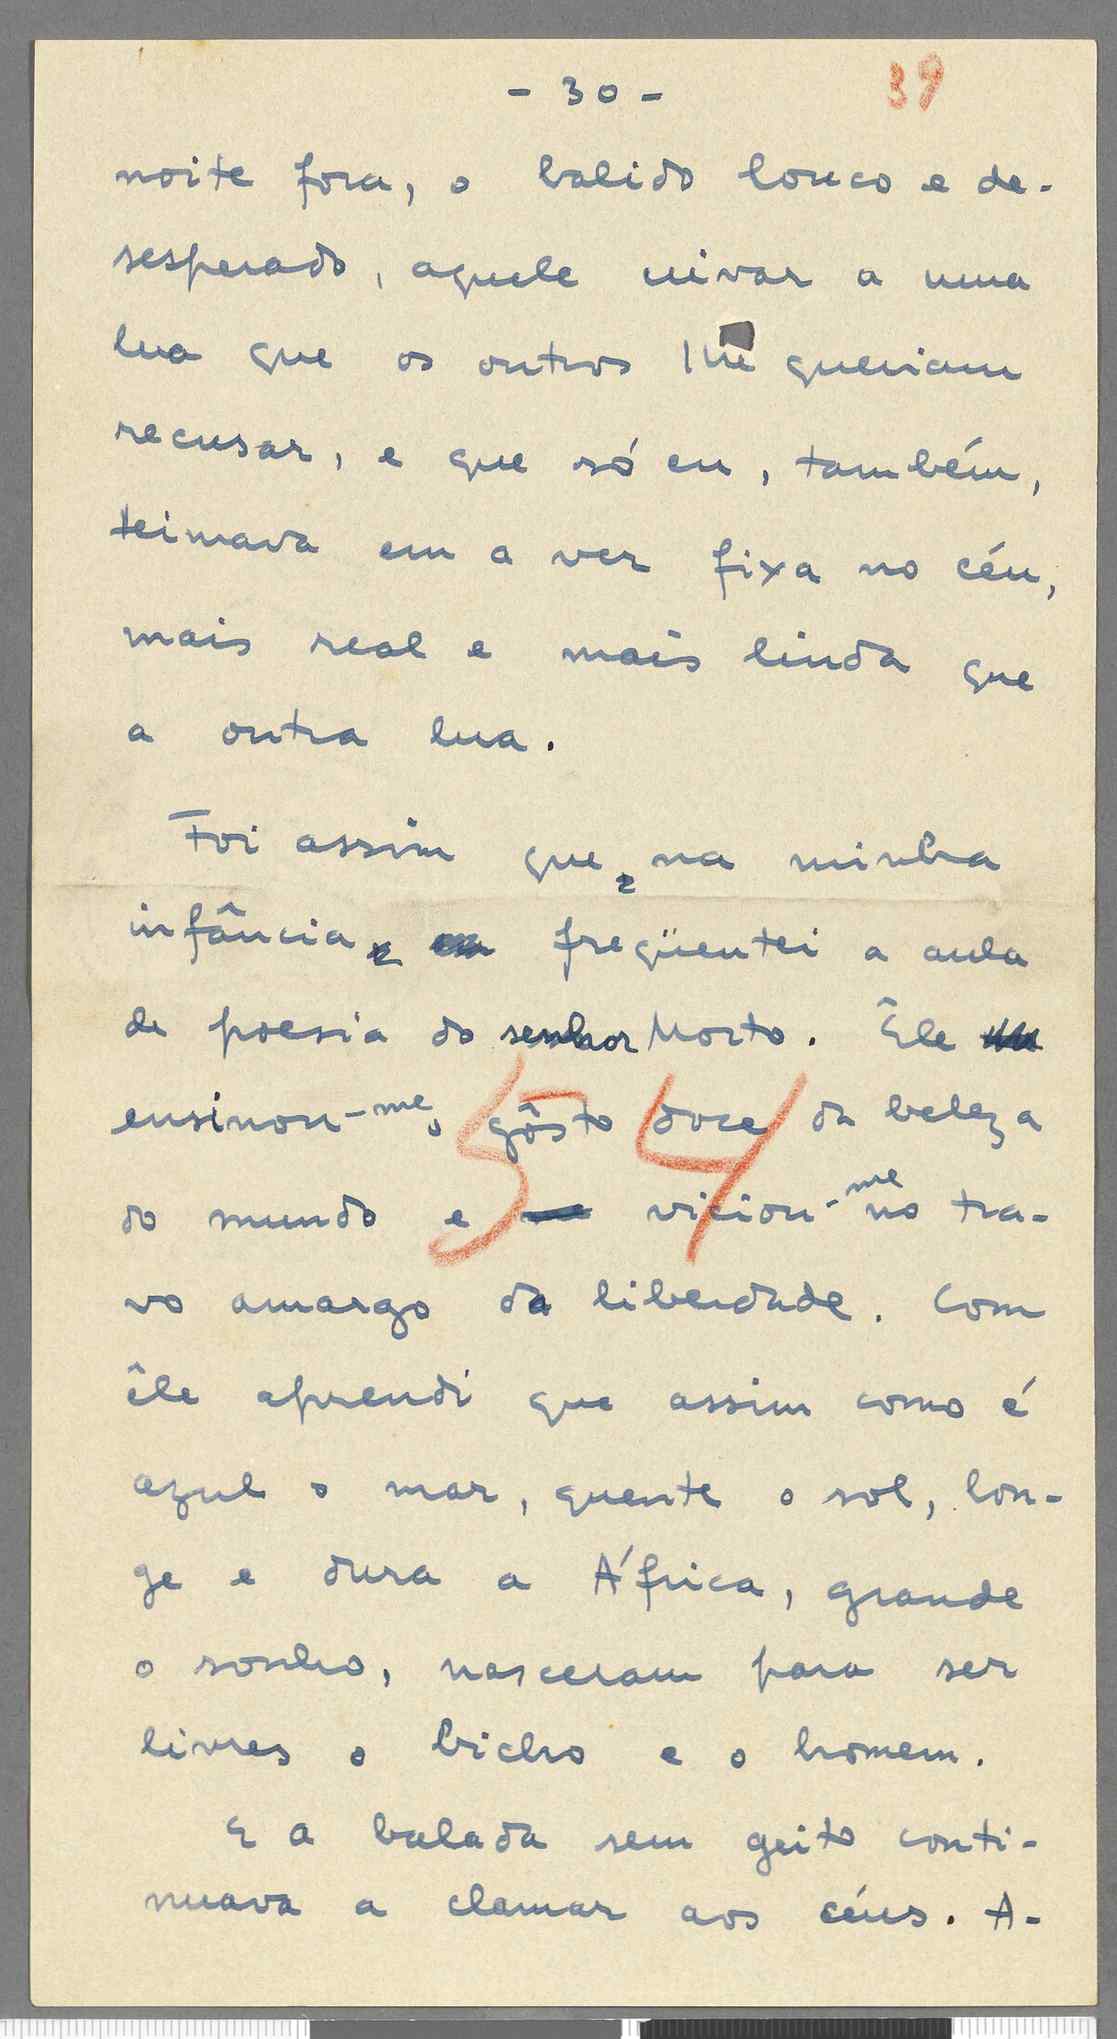 - 30 - 39
noite fora, o balido louco e de-
sesperado, aquele uivar a uma
lua que os outros lhe queriam
recusar, e que só eu, também,
teimava em a ver fixa no céu,
mais real e mais linda que
a outra lua.
Foi assim que, na minha
infância, freqüentei a aula
de poesia do senhor Morto. Êle
ensinou-me o gôsto doce da beleza
54
do mundo e viciou-me no tra-
vo amargo da liberdade. Com
êle aprendi que assim como é
azul o mar, quente o sol, lon-
ge e dura a África, grande
o sonho, nasceram para ser
livres o bicho e o homem.
E a balada sem geito conti-
nuava a clamar aos céus. A-